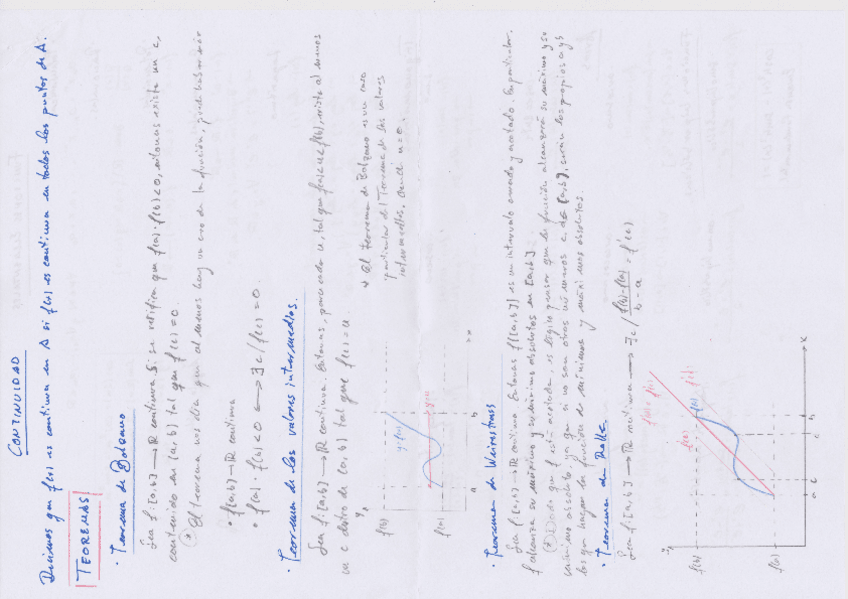 CONTINUIDAD
Decimos que f(x) es continua en A si f(x) es continua en todos los puntos de A.
TEOREMAS
· Teorema de Bolzano
Sea f: [a,b] → R continua. Si se verifica que f(a)·f(b)<0, entonces existe un c,
contenido en (a,b) tal que f(c)=0.
El teorema nos dice que al menos hay un cero de la función, puede haber más
• f[a,b] → R continua
• f(a)·f(b)<0 → ∃c/f(c)=0.
· Teorema de los valores intermedios.
Sea f: [a,b] → R continua. Entonces, para cada u, tal que f(a)<u<f(b), existe al menos
un c dentro de (a,b) tal que f(c)=u
→ El teorema de Bolzano es un caso
particular del Teorema de los valores
intermedios. Donde u=0.
y
f(b)
f(a)
y=f(x)
y=u
a
b
x
· Teorema de Weierstrass
Sea f: [a,b] → R continua. Entonces f([a,b]) es un intervalo cerrado y acotado. En particular,
f alcanza su máximo y su mínimo absolutos en [a,b].
Dado que f está acotada, es lógico pensar que la función alcanzará su máximo y su
mínimo absoluto, ya que si no son otros números c, d ∈ [a,b], serán los propios a y b
los que hagan la función de mínimos y máximos absolutos.
· Teorema de Rolle
Sea f: [a,b] → R continua → ∃c / f(b)-f(a) / b-a = f'(c)
y
f(b)
f(a)
f'(c)
a
c
c
b
x